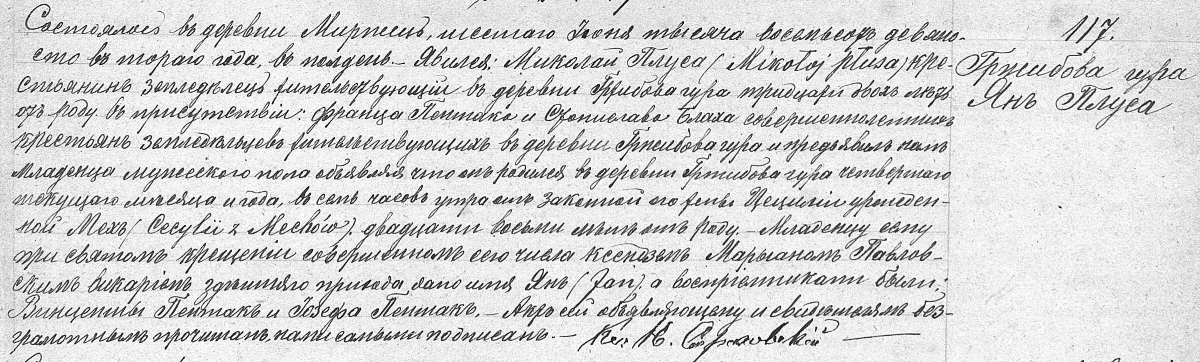 Состоялось въ деревни Миржец, шестаго Іюня тысяча восемьсотъ девяно-
сто втораго года, въ полдень. — Явился: Миколай Плуса (Mikołaj Płusa) кре-
стьянин земледѣлец жительствующій въ деревни Гржибова гура тридцати двох лѣтъ
отъ роду, въ присутствіи: Франца Пентака и Станислава Блаха совершеннолетних
крестьян земледѣльцев жительствующих въ деревни Гржибова гура и предъявилъ нам
младенца мужескаго пола объявляя что онъ родился въ деревни Гржибова гура четвертаго
текущаго мѣсяца и года, въ семь часовъ утра отъ законной его жены Цециліи урожден-
ной Мехъ (Cecylii z Mechów), двадцати восьми лѣтъ отъ роду. — Младенцу сему
при святомъ крещеніи совершенномъ сего числа ксендземъ Марьяномъ Павлов-
скимъ викаріемъ здѣшняго прихода, дано имя Янъ (Jan), а воспріемниками были:
Винценты Пентакъ и Іозефа Пентакъ. — Актъ сей объявляющему и свидѣтелямъ без-
грамотнымъ прочитанъ, нами самыми подписанъ. — Кс. К.
117.
Гржибова гура
Янъ Плуса